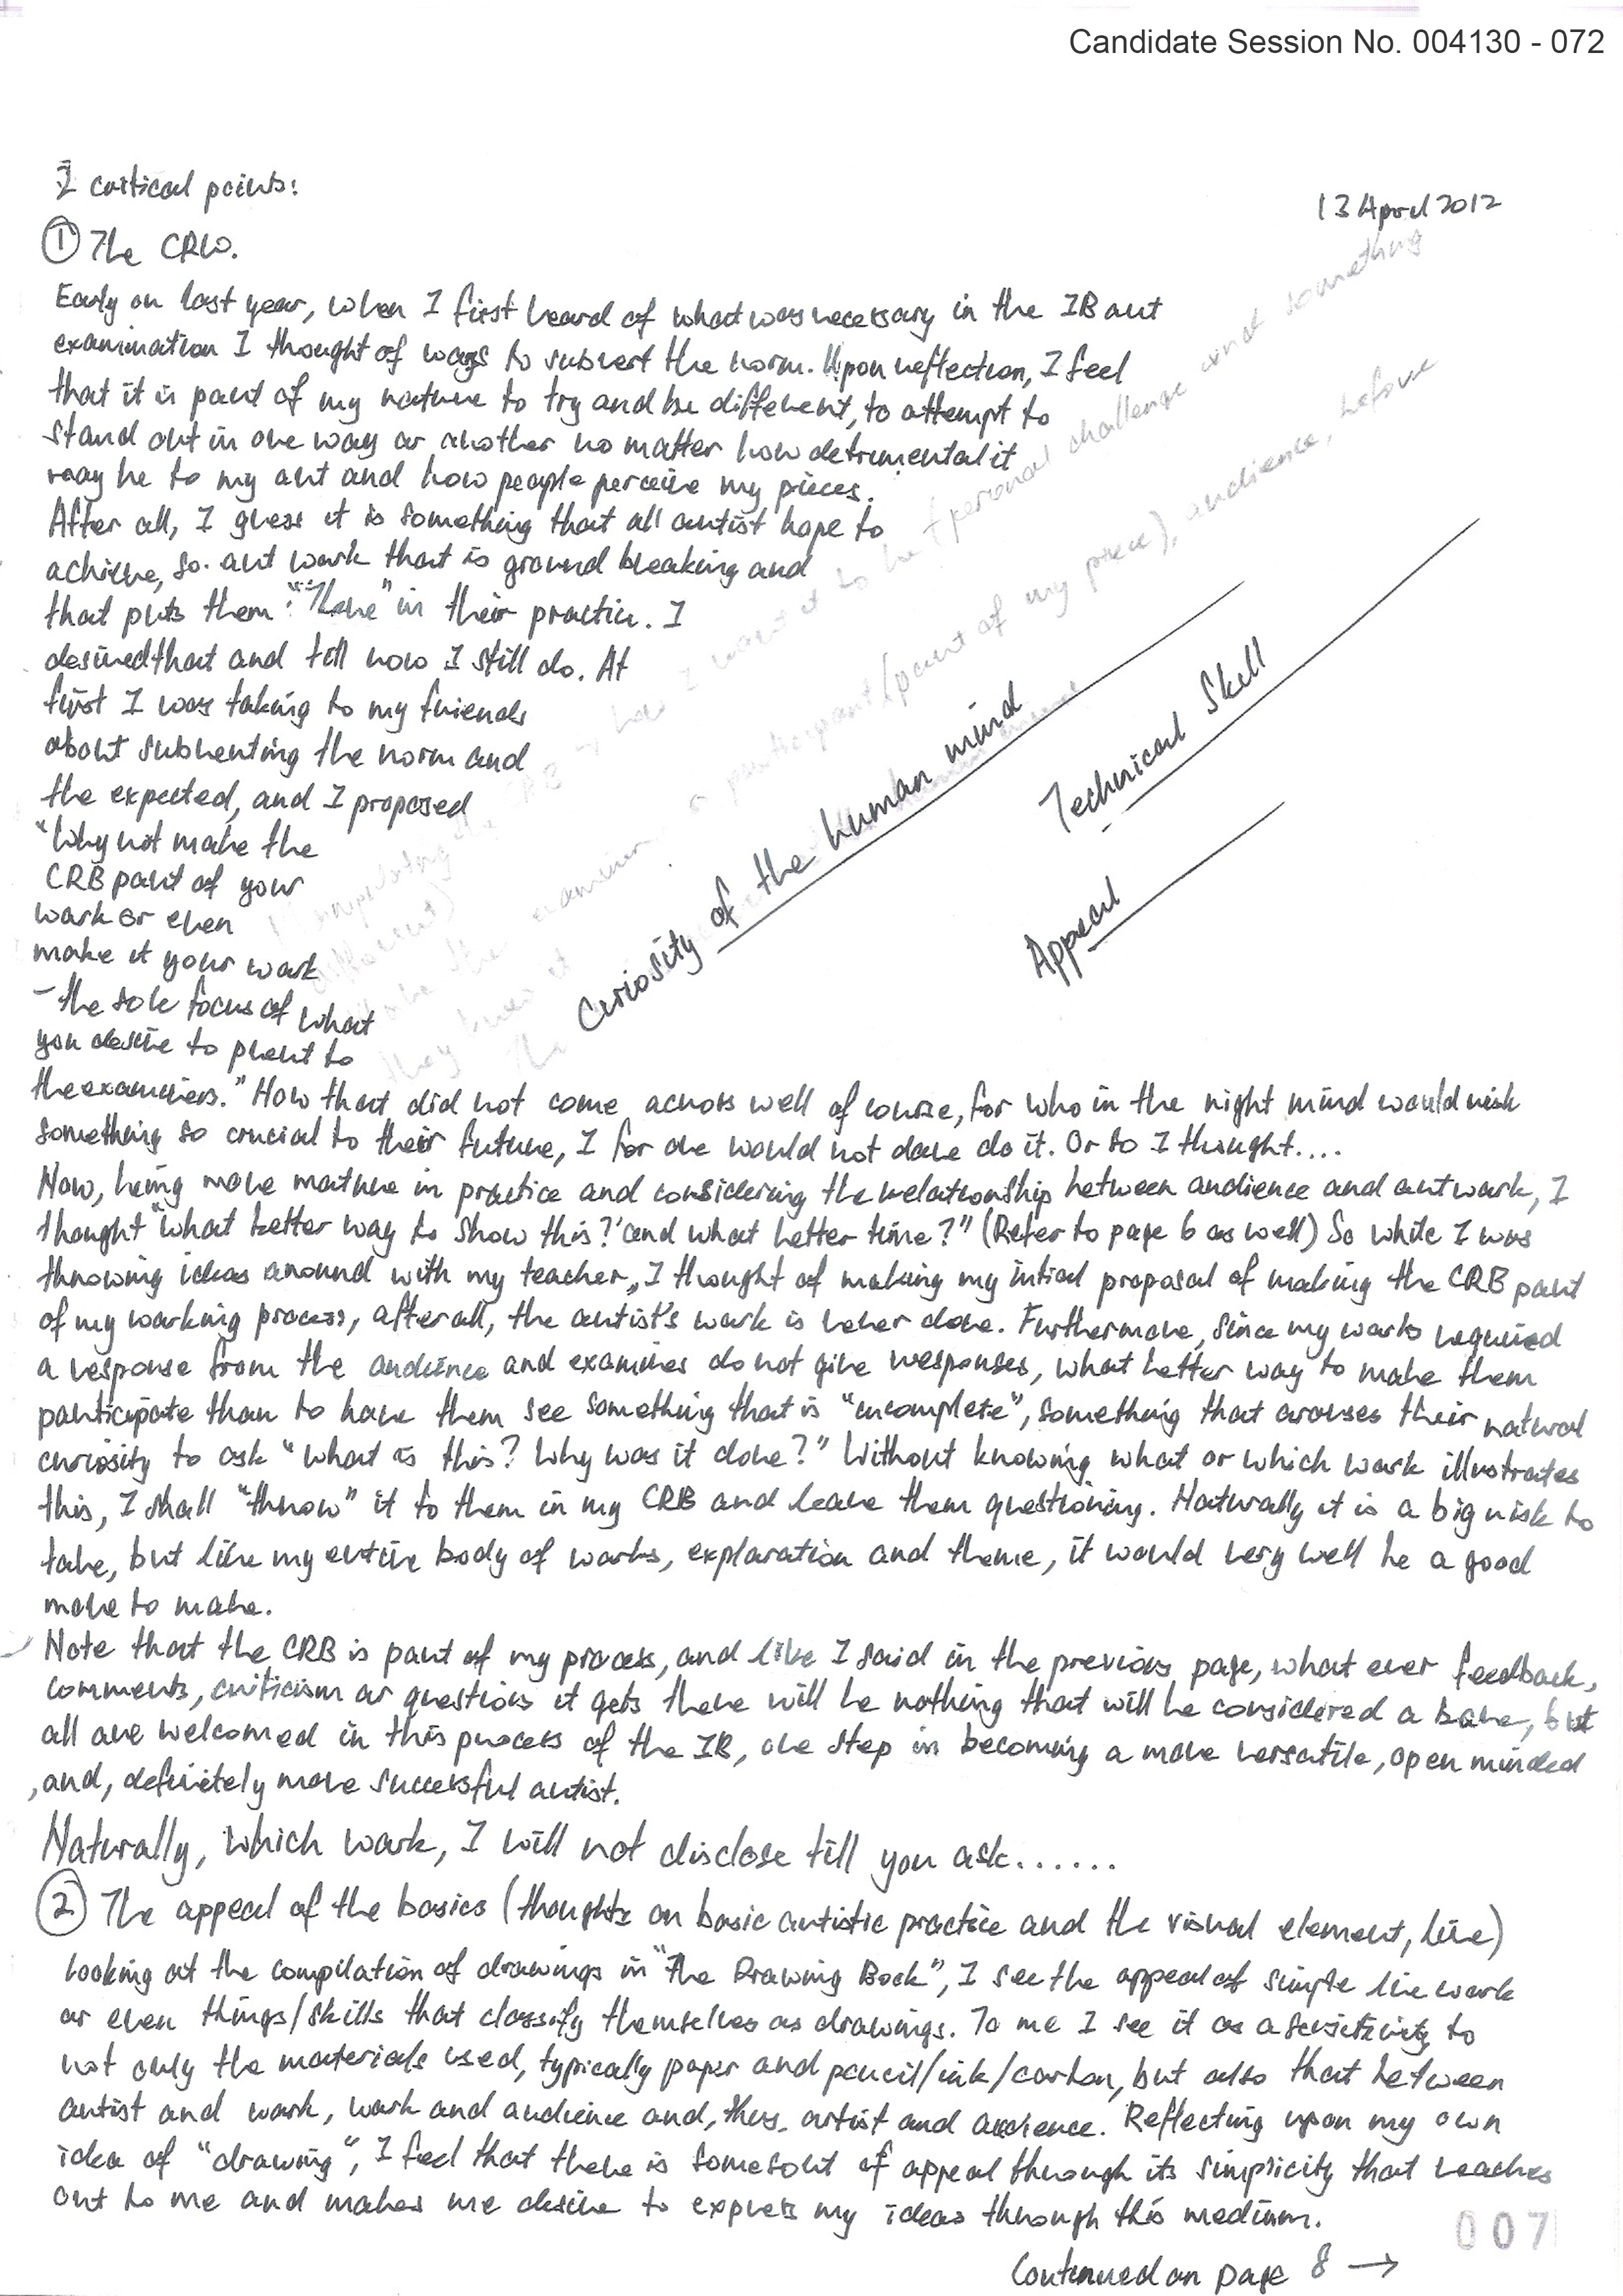 Candidate Session No. 004130 - 072
2 critical points:
13 April 2012
① The CRW.
Early on last year, when I first heard of what was necessary in the IB art
examination I thought of ways to subvert the norm. Upon reflection, I feel
that it is part of my nature to try and be different, to attempt to
stand out in one way or another no matter how detrimental it
may be to my art and how people perceive my pieces.
After all, I guess it is something that all artist hope to
achieve, so art work that is ground breaking and
that puts them "There" in their practice. I
desired that and till now I still do. At
first I was taking to my friends
about subverting the norm and
the expected, and I proposed
"Why not make the
CRB part of your
work or even
make it your work
- the sole focus of what
you desire to present to
the examiners." How that did not come across well of course, for who in the right mind would risk
something so crucial to their future, I for one would not dare do it. Or so I thought....
Now, being more mature in practice and considering the relationship between audience and artwork, I
thought "what better way to show this?" and what better time?" (Refer to page 6 as well) So while I was
throwing ideas around with my teacher, I thought of making my intial proposal of making the CRB part
of my working process, after all, the artist's work is never done. Furthermore, since my works required
a response from the audience and examines do not give responses, what better way to make them
participate than to have them see something that is "incomplete", something that arouses their natural
curiosity to ask "what is this? Why was it done?" Without knowing what or which work illustrates
this, I shall "throw" it to them in my CRB and leave them questioning. Naturally it is a big risk to
take, but like my entire body of works, exploration and theme, it would very well be a good
move to make.
Note that the CRB is part of my process, and like I said in the previous page, what ever feedback,
comments, criticism or questions it gets there will be nothing that will be considered a bane, but
all are welcomed in this process of the IB, one step in becoming a more versatile, open minded
, and, definitely more successful artist.
Naturally, which work, I will not disclose till you ask......
personal challenge and something
participant (part of my piece), audience, before
Curiosity of the human mind
Technical Skill
Appeal
② The appeal of the basics (thoughts on basic artistic practice and the visual element, line)
Looking at the compilation of drawings in "The Drawing Book", I see the appeal of simple line work
or even things/skills that classify themselves as drawings. To me I see it as a sensitivity to
not only the materials used, typically paper and pencil/ink/carbon, but also that between
artist and work, work and audience and, thus, artist and audience. Reflecting upon my own
idea of "drawing", I feel that there is some sort of appeal through its simplicity that reaches
out to me and makes me desire to express my ideas through this medium.
007
Continued on page 8 →